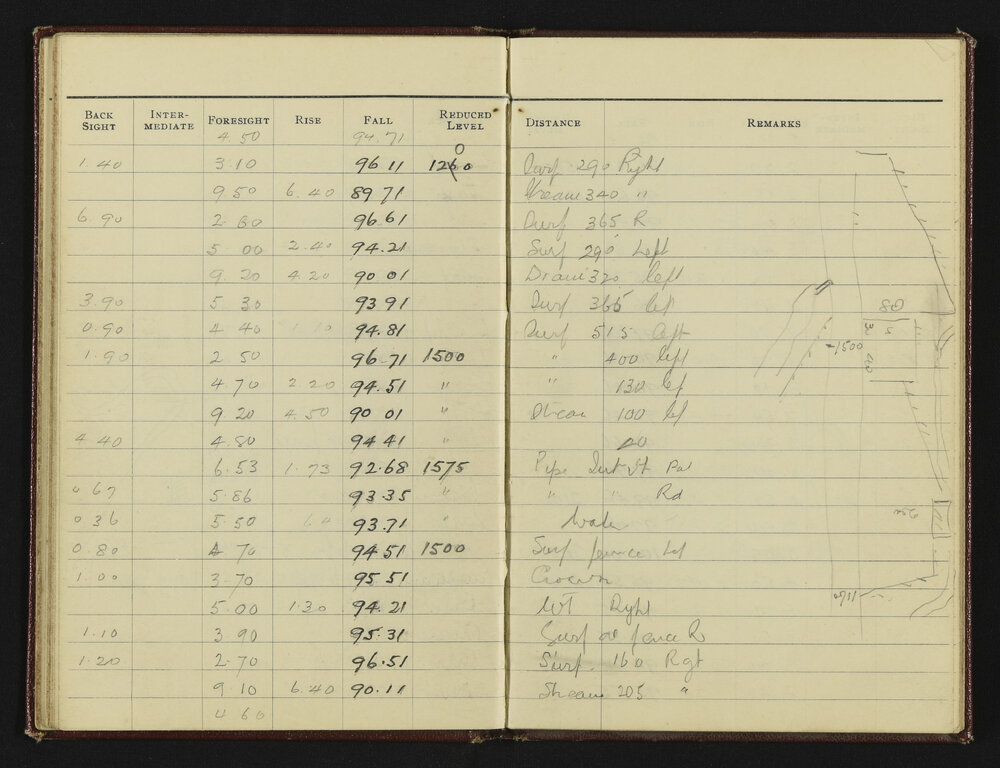 BACK SIGHT INTER-MEDIATE FORESIGHT RISE FALL REDUCED LEVEL DISTANCE REMARKS
4.50 94.71
1.40 3.10 96.11 1200 Surf 290 Right
9.50 6.40 89.71 Stream 340 "
6.90 2.60 96.61 Surf 365 R
5.00 2.40 94.21 Surf 290 Left
9.20 4.20 90.01 Drain 320 left
3.90 5.30 93.91 Surf 365 lef
0.90 4.40 94.81 Surf 515 left
1.90 2.50 96.71 1500 " 400 left
4.70 2.20 94.51 " " 130 lef
9.20 4.50 90.01 " Strea 100 lef
4.40 4.80 94.41 " 20
6.53 1.73 92.68 1575 Pipe
0.67 5.86 93.35 " " " Rd
0.36 5.50 93.71 " Water
0.80 4.70 94.51 1500 Surf fence Lef
1.00 3.70 95.51 Crown
5.00 1.30 94.21 WT Right
1.10 3.90 95.31 Surf at fence R
1.20 2.70 96.51 Surf. 160 Rgt
9.10 6.40 90.11 Stream 205 "
4.60
1500